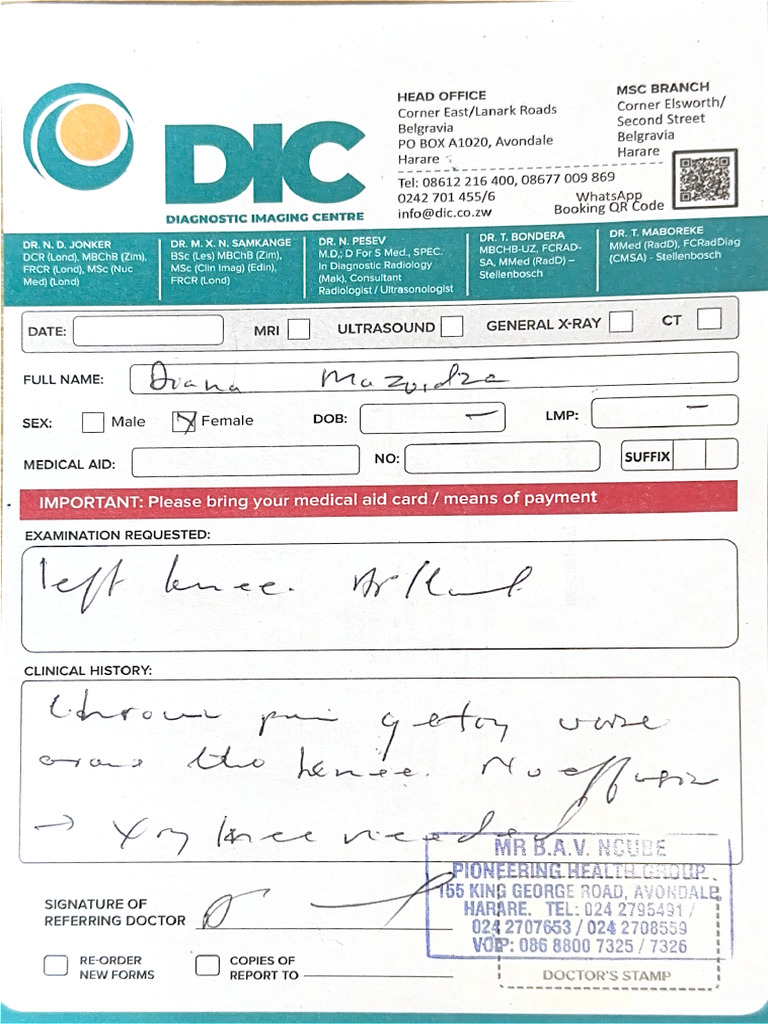 DIC
DIAGNOSTIC IMAGING CENTRE
HEAD OFFICE
Corner East/Lanark Roads
Belgravia
PO BOX A1020, Avondale
Harare
Tel: 08612 216 400, 08677 009 869
0242 701 455/6
info@dic.co.zw
MSC BRANCH
Corner Elsworth/
Second Street
Belgravia
Harare
WhatsApp
Booking QR Code
DR. N. D. JONKER
DCR (Lond), MBChB (Zim),
FRCR (Lond), MSc (Nuc
Med) (Lond)
DR. M. X. N. SAMKANGE
BSc (Les) MBChB (Zim),
MSc (Clin Imag) (Edin),
FRCR (Lond)
DR. N. PESEV
M.D,; D For S Med., SPEC.
In Diagnostic Radiology
(Mak), Consultant
Radiologist / Ultrasonologist
DR. T. BONDERA
MBCHB-UZ, FCRAD-
SA, MMed (RadD) –
Stellenbosch
DR. T. MABOREKE
MMed (RadD), FCRadDiag
(CMSA) - Stellenbosch
DATE: MRI ULTRASOUND GENERAL X-RAY CT
FULL NAME: Diana
SEX: Male Female DOB: – LMP: –
MEDICAL AID: NO: SUFFIX
IMPORTANT: Please bring your medical aid card / means of payment
EXAMINATION REQUESTED:
left knee.
CLINICAL HISTORY:
Chronic pain getting worse
around the knee. No effusion
→ Xray knee needed
MR B.A.V. NCUBE
PIONEERING HEALTH GROUP
155 KING GEORGE ROAD, AVONDALE
HARARE. TEL: 024 2795491 /
024 2707653 / 024 2708559
VOIP: 086 8800 7325 / 7326
SIGNATURE OF
REFERRING DOCTOR
RE-ORDER
NEW FORMS
COPIES OF
REPORT TO
DOCTOR'S STAMP